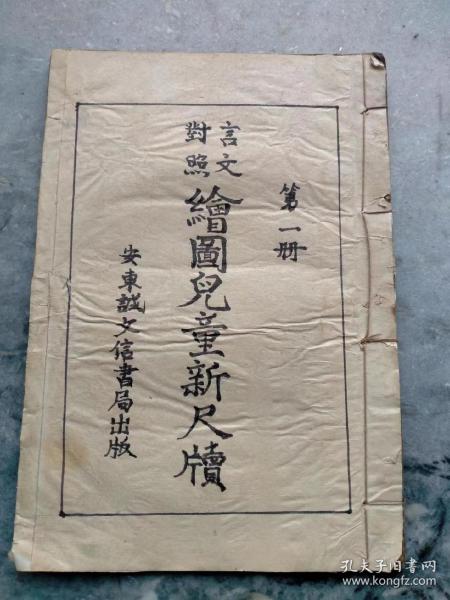 第一册
言文
對照
繪圖兒童新尺牘
安東誠文信書局出版
孔夫子旧书网
www.kongfz.com